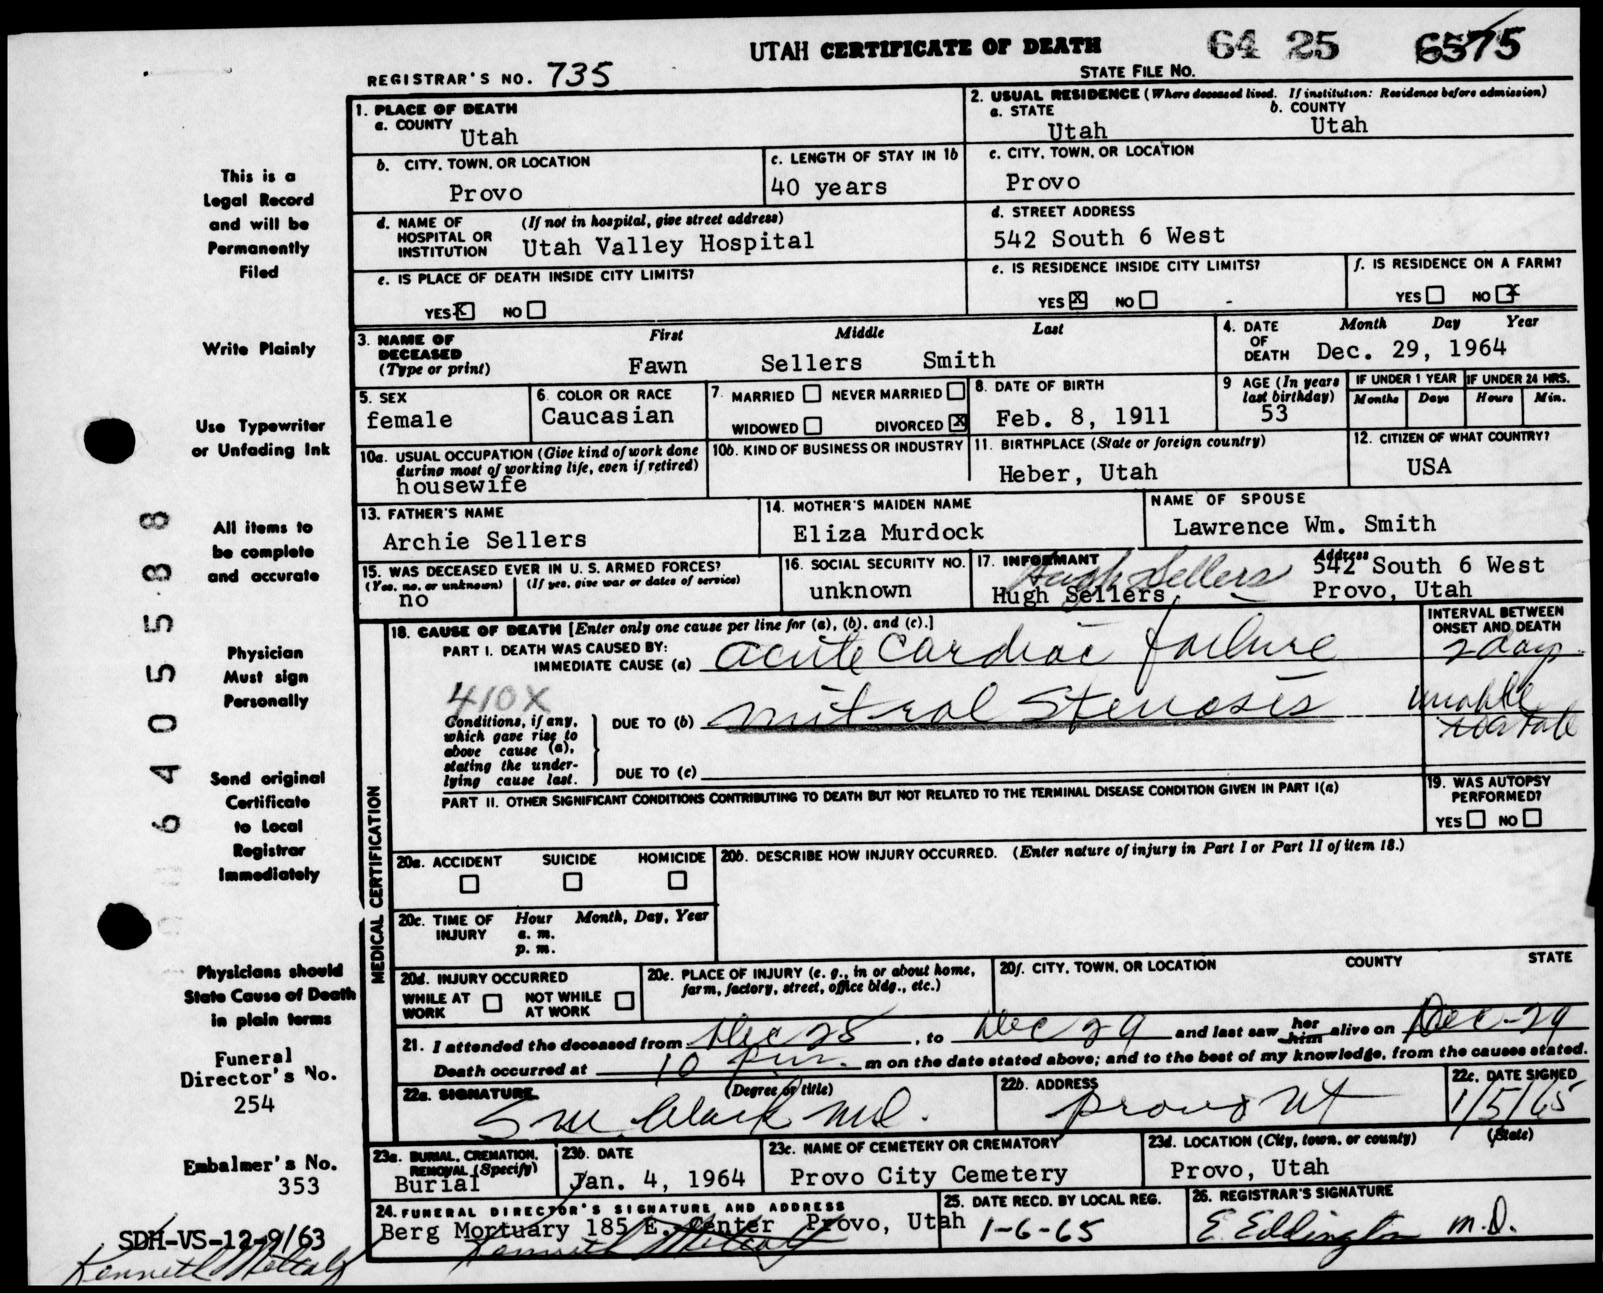 UTAH CERTIFICATE OF DEATH 64 25 6575
REGISTRAR'S NO. 735
STATE FILE NO.
1. PLACE OF DEATH
a. COUNTY
Utah
2. USUAL RESIDENCE (Where deceased lived. If institution: Residence before admission)
a. STATE b. COUNTY
Utah Utah
b. CITY, TOWN, OR LOCATION
Provo
c. LENGTH OF STAY IN 1b
40 years
c. CITY, TOWN, OR LOCATION
Provo
d. NAME OF HOSPITAL OR INSTITUTION (If not in hospital, give street address)
Utah Valley Hospital
d. STREET ADDRESS
542 South 6 West
e. IS PLACE OF DEATH INSIDE CITY LIMITS?
YES X NO
e. IS RESIDENCE INSIDE CITY LIMITS?
YES X NO
f. IS RESIDENCE ON A FARM?
YES NO X
3. NAME OF DECEASED (Type or print)
First Middle Last
Fawn Sellers Smith
4. DATE OF DEATH
Month Day Year
Dec. 29, 1964
5. SEX
female
6. COLOR OR RACE
Caucasian
7. MARRIED NEVER MARRIED
WIDOWED DIVORCED X
8. DATE OF BIRTH
Feb. 8, 1911
9 AGE (In years last birthday)
53
IF UNDER 1 YEAR IF UNDER 24 HRS.
Months Days Hours Min.
10a. USUAL OCCUPATION (Give kind of work done during most of working life, even if retired)
housewife
10b. KIND OF BUSINESS OR INDUSTRY
11. BIRTHPLACE (State or foreign country)
Heber, Utah
12. CITIZEN OF WHAT COUNTRY?
USA
13. FATHER'S NAME
Archie Sellers
14. MOTHER'S MAIDEN NAME
Eliza Murdock
NAME OF SPOUSE
Lawrence Wm. Smith
15. WAS DECEASED EVER IN U. S. ARMED FORCES?
(Yes, no, or unknown) (If yes, give war or dates of service)
no
16. SOCIAL SECURITY NO.
unknown
17. INFORMANT
Hugh Sellers
Hugh Sellers,
Address
542 South 6 West
Provo, Utah
MEDICAL CERTIFICATION
18. CAUSE OF DEATH [Enter only one cause per line for (a), (b), and (c).]
INTERVAL BETWEEN ONSET AND DEATH
PART I. DEATH WAS CAUSED BY:
IMMEDIATE CAUSE (a) acute cardiac failure 2 days
410X
Conditions, if any, which gave rise to above cause (a), stating the underlying cause last.
DUE TO (b) mitral stenosis unable
to state
DUE TO (c)
PART II. OTHER SIGNIFICANT CONDITIONS CONTRIBUTING TO DEATH BUT NOT RELATED TO THE TERMINAL DISEASE CONDITION GIVEN IN PART I(a)
19. WAS AUTOPSY PERFORMED?
YES NO
20a. ACCIDENT SUICIDE HOMICIDE
20b. DESCRIBE HOW INJURY OCCURRED. (Enter nature of injury in Part I or Part II of item 18.)
20c. TIME OF INJURY
Hour Month, Day, Year
a. m.
p. m.
20d. INJURY OCCURRED
WHILE AT WORK NOT WHILE AT WORK
20e. PLACE OF INJURY (e. g., in or about home, farm, factory, street, office bldg., etc.)
20f. CITY, TOWN, OR LOCATION COUNTY STATE
21. I attended the deceased from Dec 28, to Dec 29 and last saw her him alive on Dec-29
Death occurred at 10 p.m. m on the date stated above; and to the best of my knowledge, from the causes stated.
22a. SIGNATURE (Degree or title)
S M Clark MD.
22b. ADDRESS
Provo Ut
22c. DATE SIGNED
1/5/65
23a. BURIAL, CREMATION, REMOVAL (Specify)
Burial
23b. DATE
Jan. 4, 1964
23c. NAME OF CEMETERY OR CREMATORY
Provo City Cemetery
23d. LOCATION (City, town, or county) (State)
Provo, Utah
24. FUNERAL DIRECTOR'S SIGNATURE AND ADDRESS
Berg Mortuary 185 E. Center Provo, Utah
Kenneth Metcalf
25. DATE RECD. BY LOCAL REG.
1-6-65
26. REGISTRAR'S SIGNATURE
E. Eddington M.D.
This is a
Legal Record
and will be
Permanently
Filed
Write Plainly
Use Typewriter
or Unfading Ink
All items to
be complete
and accurate
Physician
Must sign
Personally
Send original
Certificate
to Local
Registrar
Immediately
Physicians should
State Cause of Death
in plain terms
Funeral
Director's No.
254
Embalmer's No.
353
SDH-VS-12-9/63
Kenneth Metcalf
6405588